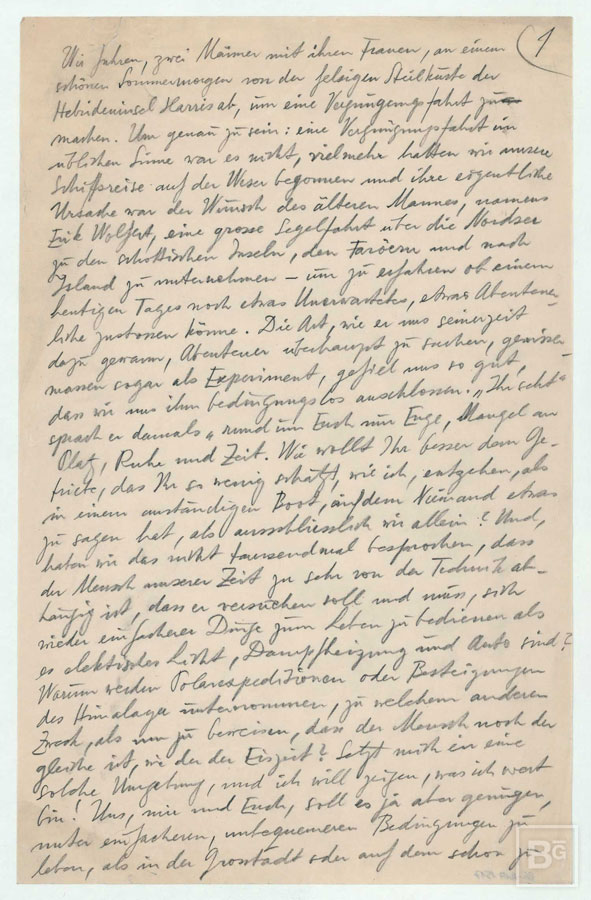 1
Wir fuhren, zwei Männer mit ihren Frauen, an einem
schönen Sommermorgen von der felsigen Steilküste der
Hebrideninsel Harris ab, um eine Vergnügungsfahrt zu
machen. Um genau zu sein: eine Vergnügungsfahrt im
üblichen Sinne war es nicht, vielmehr hatten wir unsere
Schiffsreise auf der Weser begonnen und ihre eigentliche
Ursache war der Wunsch des älteren Mannes, namens
Erik Wolfert, eine grosse Segelfahrt über die Nordsee
zu den schottischen Inseln, den Faröern und nach
Island zu unternehmen – um zu erfahren ob einem
heutigen Tages noch etwas Unerwartetes, etwas Abenteuer-
liche zustossen könne. Die Art, wie er uns seinerzeit
dazu gewann, Abenteuer überhaupt zu suchen, gewisser-
massen sogar als Experiment, gefiel uns so gut,
dass wir uns ihm bedingungslos anschlossen. „Ihr seht"
sprach er damals „rund um Euch nur Enge, Mangel an
Platz, Ruhe und Zeit. Wie wollt Ihr besser dem Ge-
triebe, das Ihr so wenig schätzt, wie ich, entgehen, als
in einem anständigen Boot, auf dem Niemand etwas
zu sagen hat, als ausschliesslich wir allein? Und,
haben wir das nicht tausendmal besprochen, dass
der Mensch unserer Zeit zu sehr von der Technik ab-
hängig ist, dass er versuchen soll und muss, sich
wieder einfacherer Dinge zum Leben zu bedienen als
es elektrisches Licht, Dampfheizung und Auto sind?
Warum werden Polarexpeditionen oder Besteigungen
des Himalaya unternommen, zu welchem anderen
Zweck, als um zu beweisen, dass der Mensch noch der
gleiche ist, wie der der Eiszeit? Setzt mich in eine
solche Umgebung, und ich will zeigen, was ich wert
bin! Uns, mir und Euch, soll es ja aber genügen,
unter einfacheren, unbequemeren Bedingungen zu
leben, als in der Grosstadt oder auf dem schon zu
BG